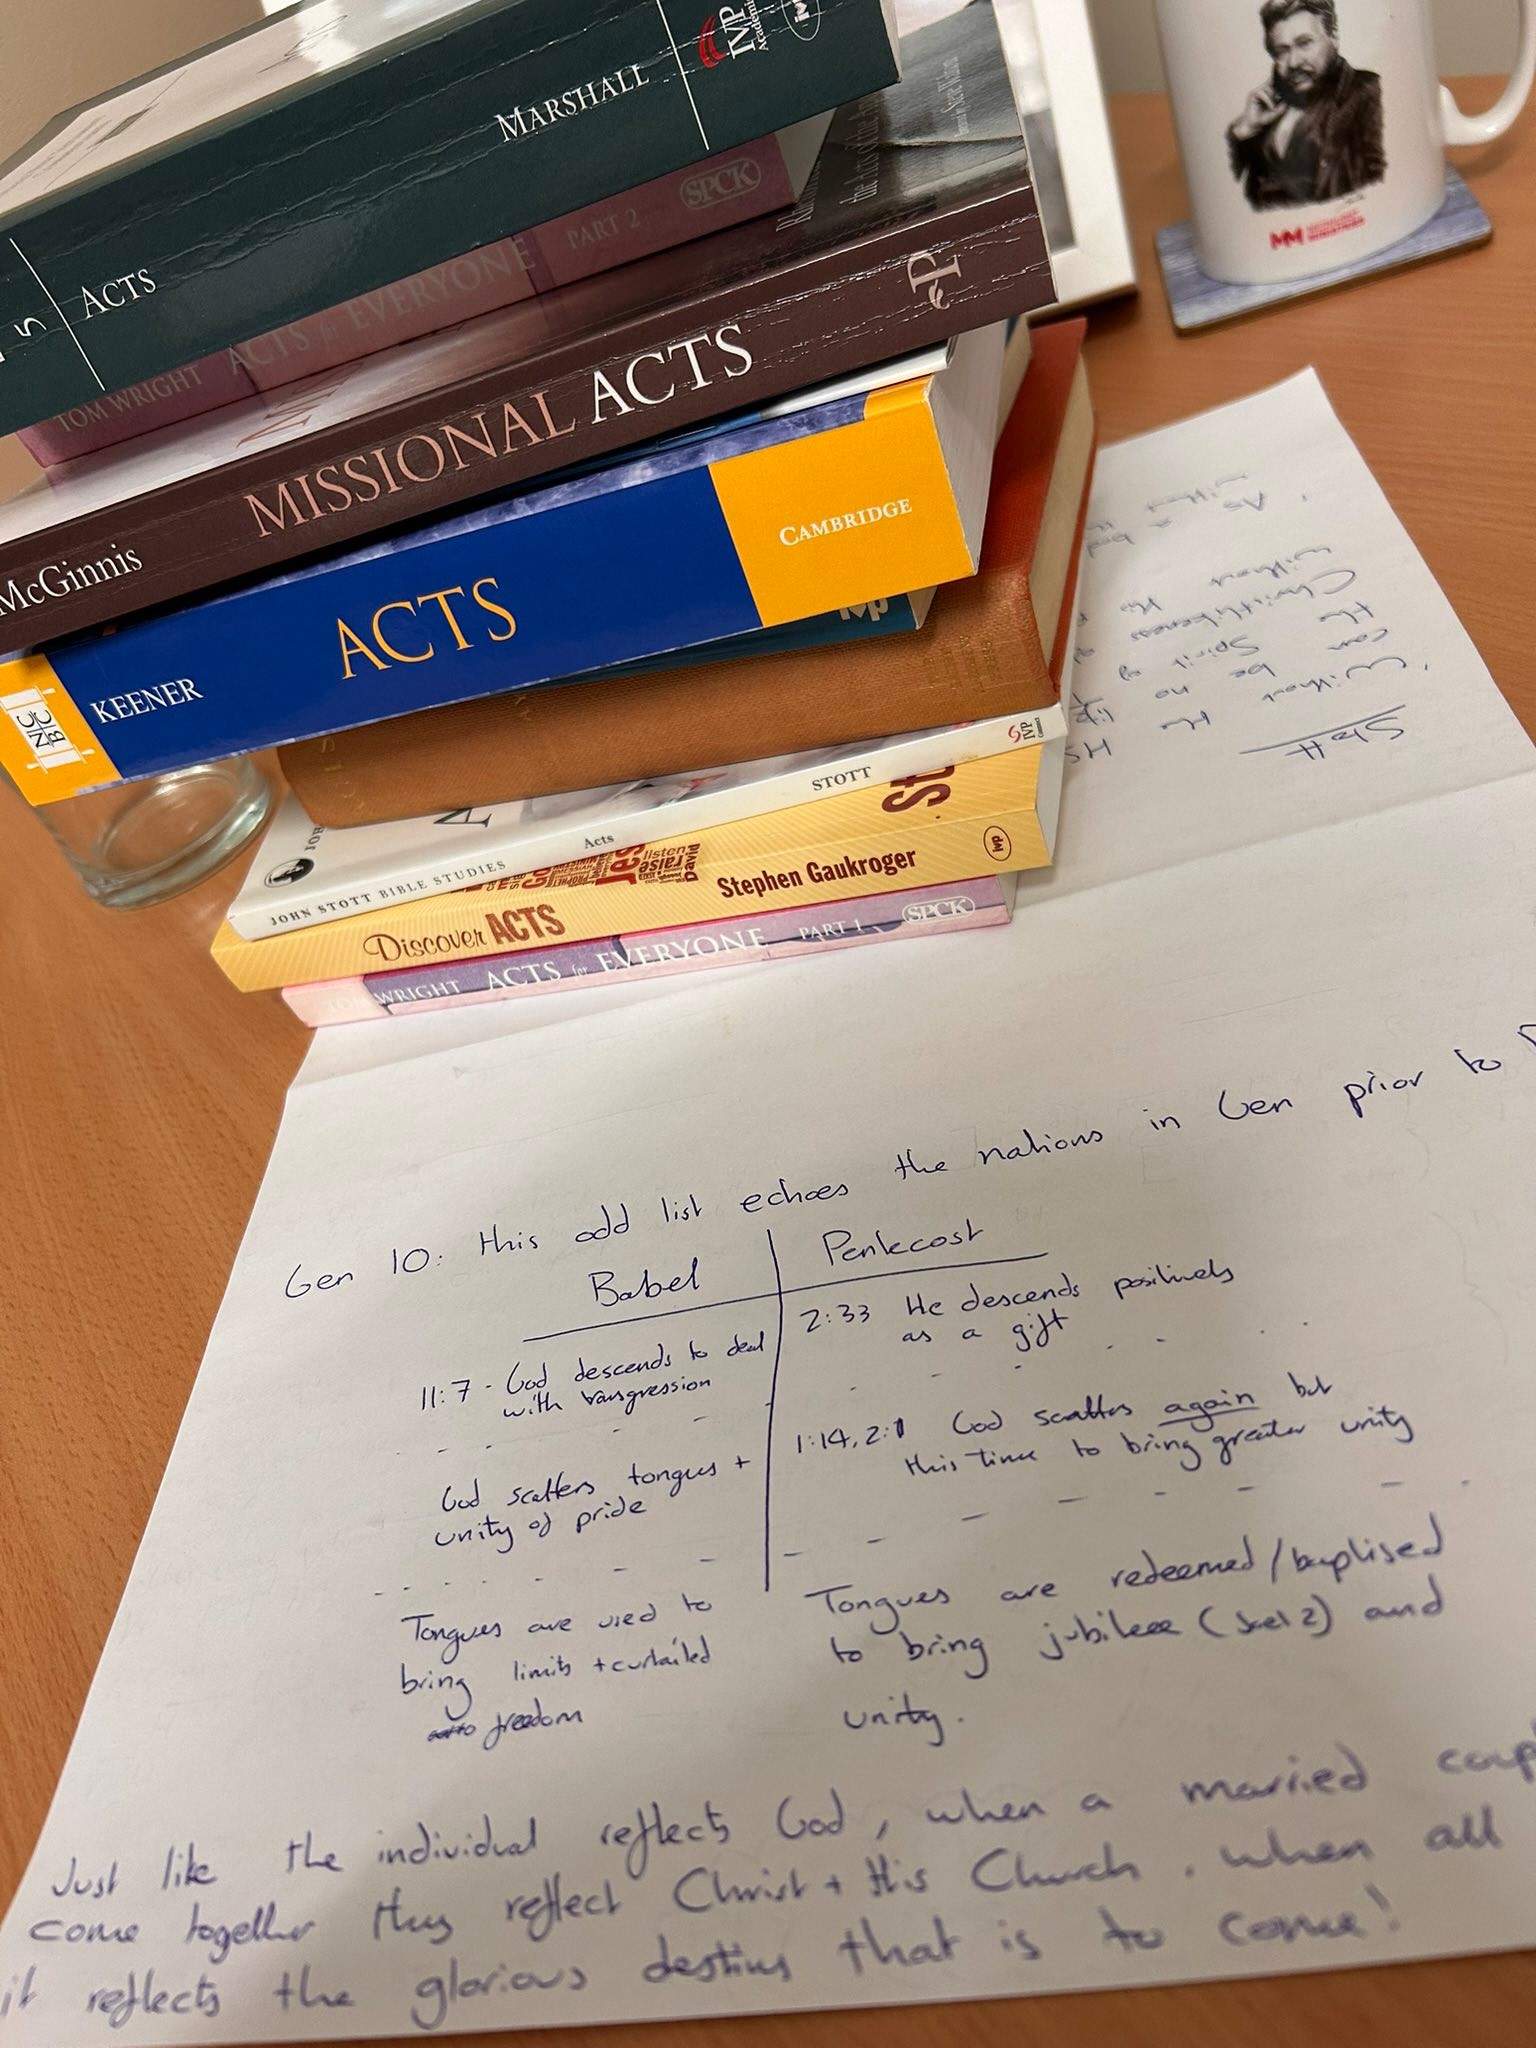 IVP
Academic
ivp
MARSHALL
5
ACTS
SPCK
PART 2
TOM WRIGHT ACTS for EVERYONE
the Acts of the
MISSIONAL ACTS
McGinnis
CAMBRIDGE
ACTS
KEENER
NC
BC
ivp
IVP
Connect
STOTT
Acts
JOHN STOTT BIBLE STUDIES
listen
raise
David
Stephen Gaukroger
ivp
Discover ACTS
TOM WRIGHT ACTS for EVERYONE PART 1 SPCK
MM
Stott
'Without the HS
can be no
the Spirit of
Christlikeness
without the
As a bod
without
Gen 10: this odd list echoes the nations in Gen prior to
Babel
Pentecost
11:7 - God descends to deal
with transgression
2:33 He descends positively
as a gift
God scatters tongues +
unity of pride
1:14, 2:1 God scatters again but
this time to bring greater unity
Tongues are used to
bring limits + curtailed
freedom
Tongues are redeemed/baptised
to bring jubilee (Joel 2) and
unity.
Just like the individual reflects God, when a married coup
come together they reflect Christ + His Church, when all
it reflects the glorious destiny that is to come!